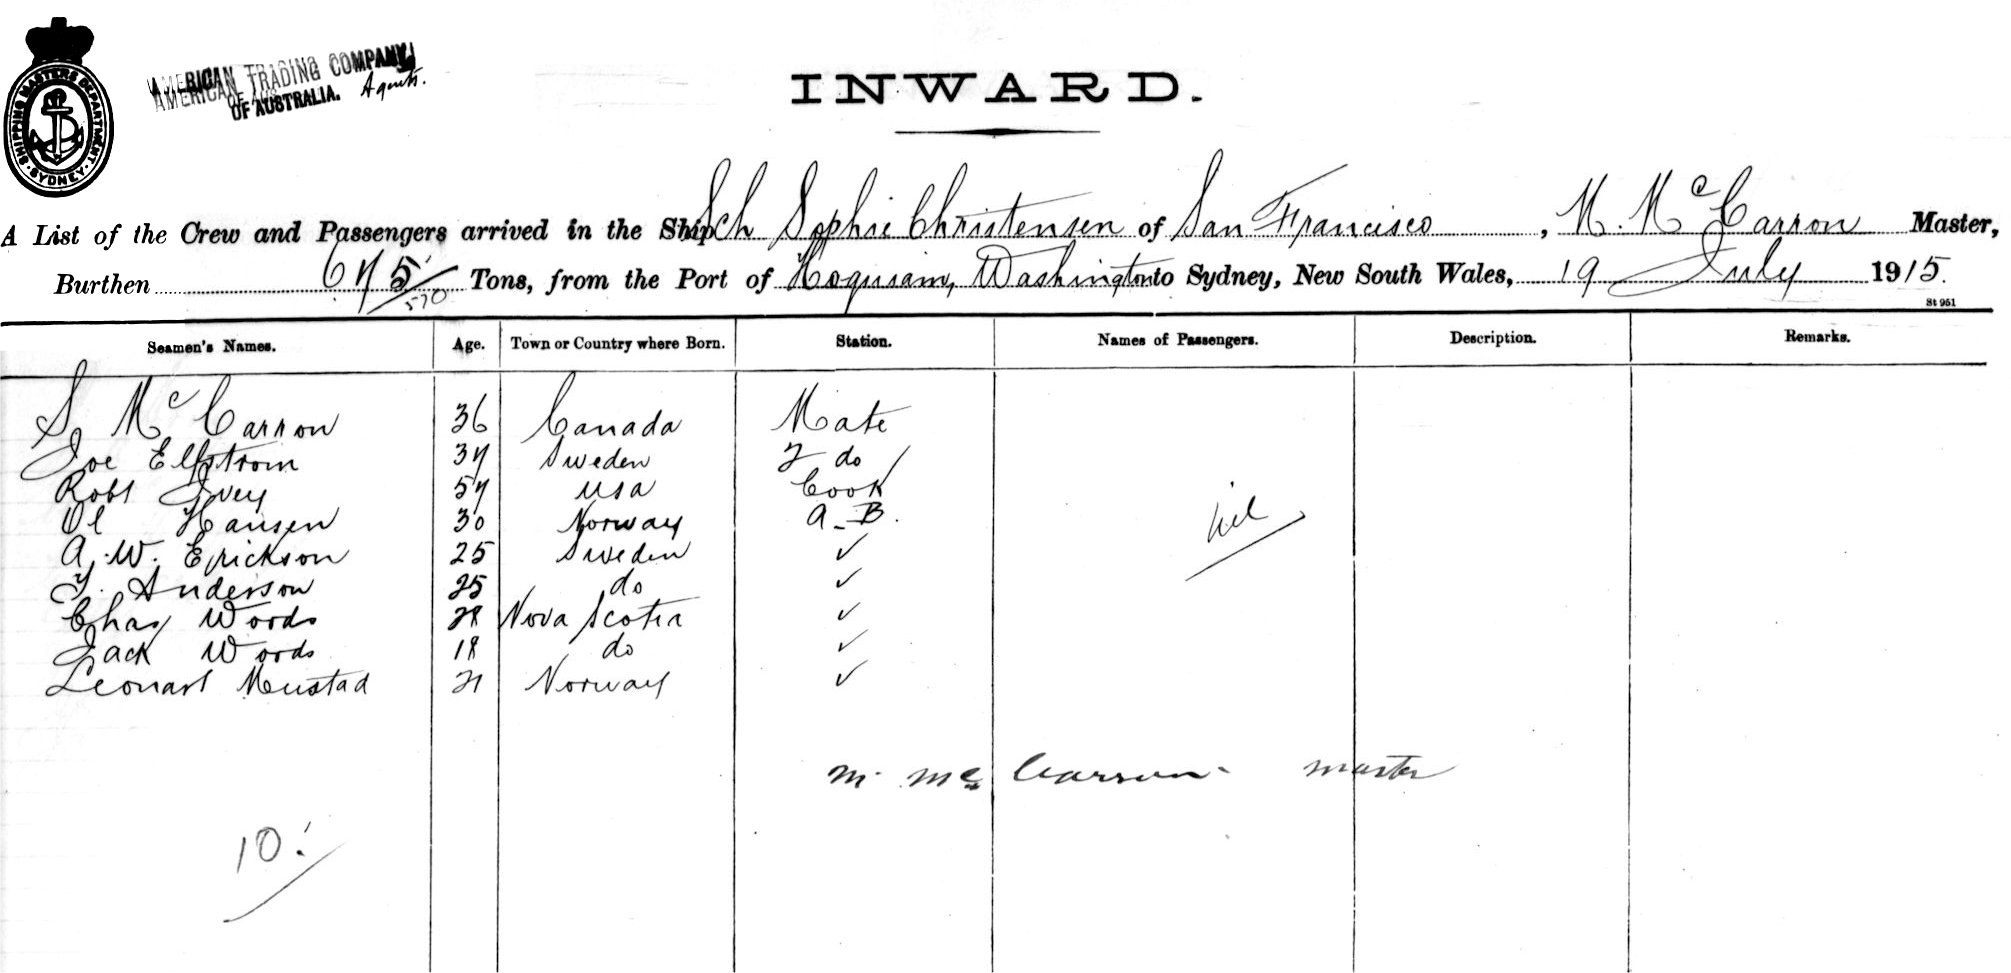 SHIPPING MASTERS DEPARTMENT. SYDNEY.
AMERICAN TRADING COMPANY
OF AUSTRALIA. Agents.
INWARD.
A List of the Crew and Passengers arrived in the Ship Sch Sophie Christensen of San Francisco, M. McCarron Master,
Burthen 675 Tons, from the Port of Hoquiam, Washington to Sydney, New South Wales, 19 July 1915.
570
St 951
Seamen's Names. Age. Town or Country where Born. Station. Names of Passengers. Description. Remarks.
S. McCarron 36 Canada Mate
Joe Elfstrom 37 Sweden 2 do
Robt Ivey 57 USA Cook
Ol Hansen 30 Norway A.B.
nil
A. W. Erickson 25 Sweden ✓
Anderson 25 do ✓
Chas Woods 28 Nova Scotia ✓
Jack Woods 18 do ✓
Leonart Mustad 21 Norway ✓
M. McCarron master
10